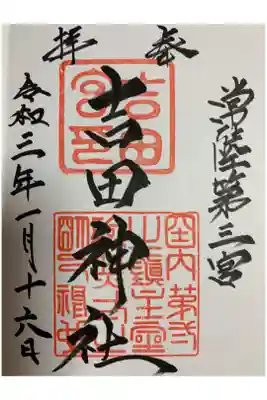 奉拝
常陸第三宮
吉田神社
令和三年一月十六日